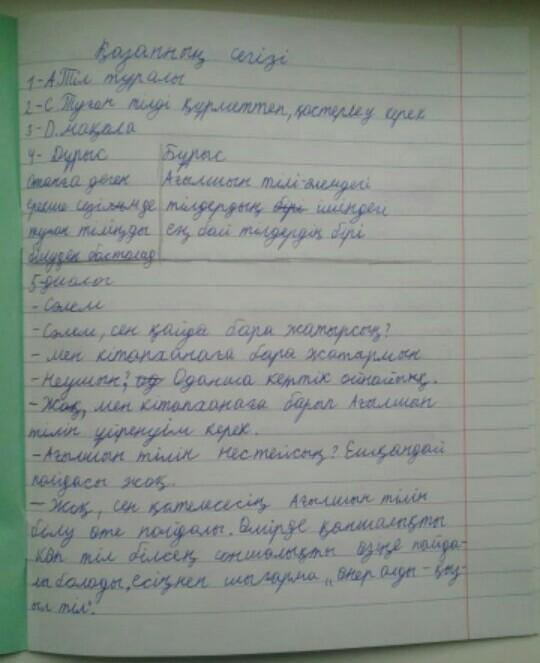 Қазанның сегізі
1-А.Тіл туралы
2-С.Туған тілді құрметтеп, қастерлеу керек
3-D.мақала
4- Дұрыс Бұрыс
Отанға деген Ағылшын тілі-әлемдегі
ерекше сезімнде тілдердың ішіндегі
туған тіліңды ең бай тілдердің бірі
білуден басталад
5-диалог
- Сәлем
- Сәлем, сен қайда бара жатырсың?
- мен кітапханаға бара жатармын
- Неушын? Оданша кептік ойнайық.
- Жоқ, мен кітапханаға барып Ағылшын
тілін үйренуім керек.
- Ағылшын тілін нестейсың? Ешқандай
пайдасы жоқ.
- Жоқ, сен қателесесің Ағылшын тілін
білу өте пайдалы. Өмірде қаншалықты
көп тіл білсең соншалықты өзіңе пайда-
лы болады, есіңнен шығарма „өнер алды-қыз-
ыл тіл".